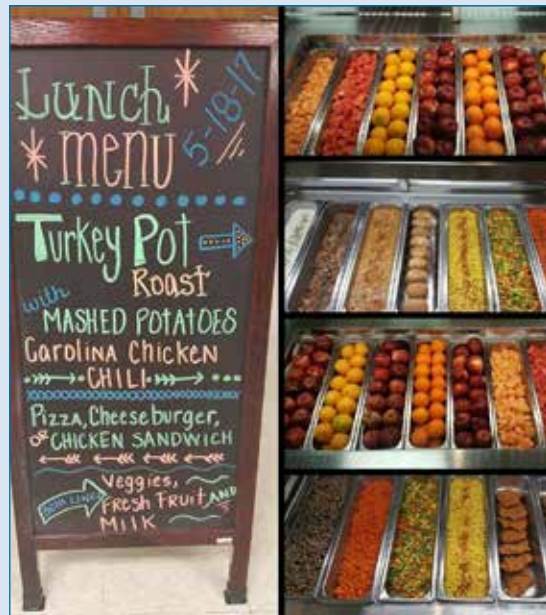 Lunch
menu
5-18-17
Turkey Pot
Roast
with
MASHED POTATOES
Carolina Chicken
CHILI
Pizza, Cheeseburger,
or CHICKEN SANDWICH
BOTH LINES
Veggies,
FRESH FRUIT AND
MILK